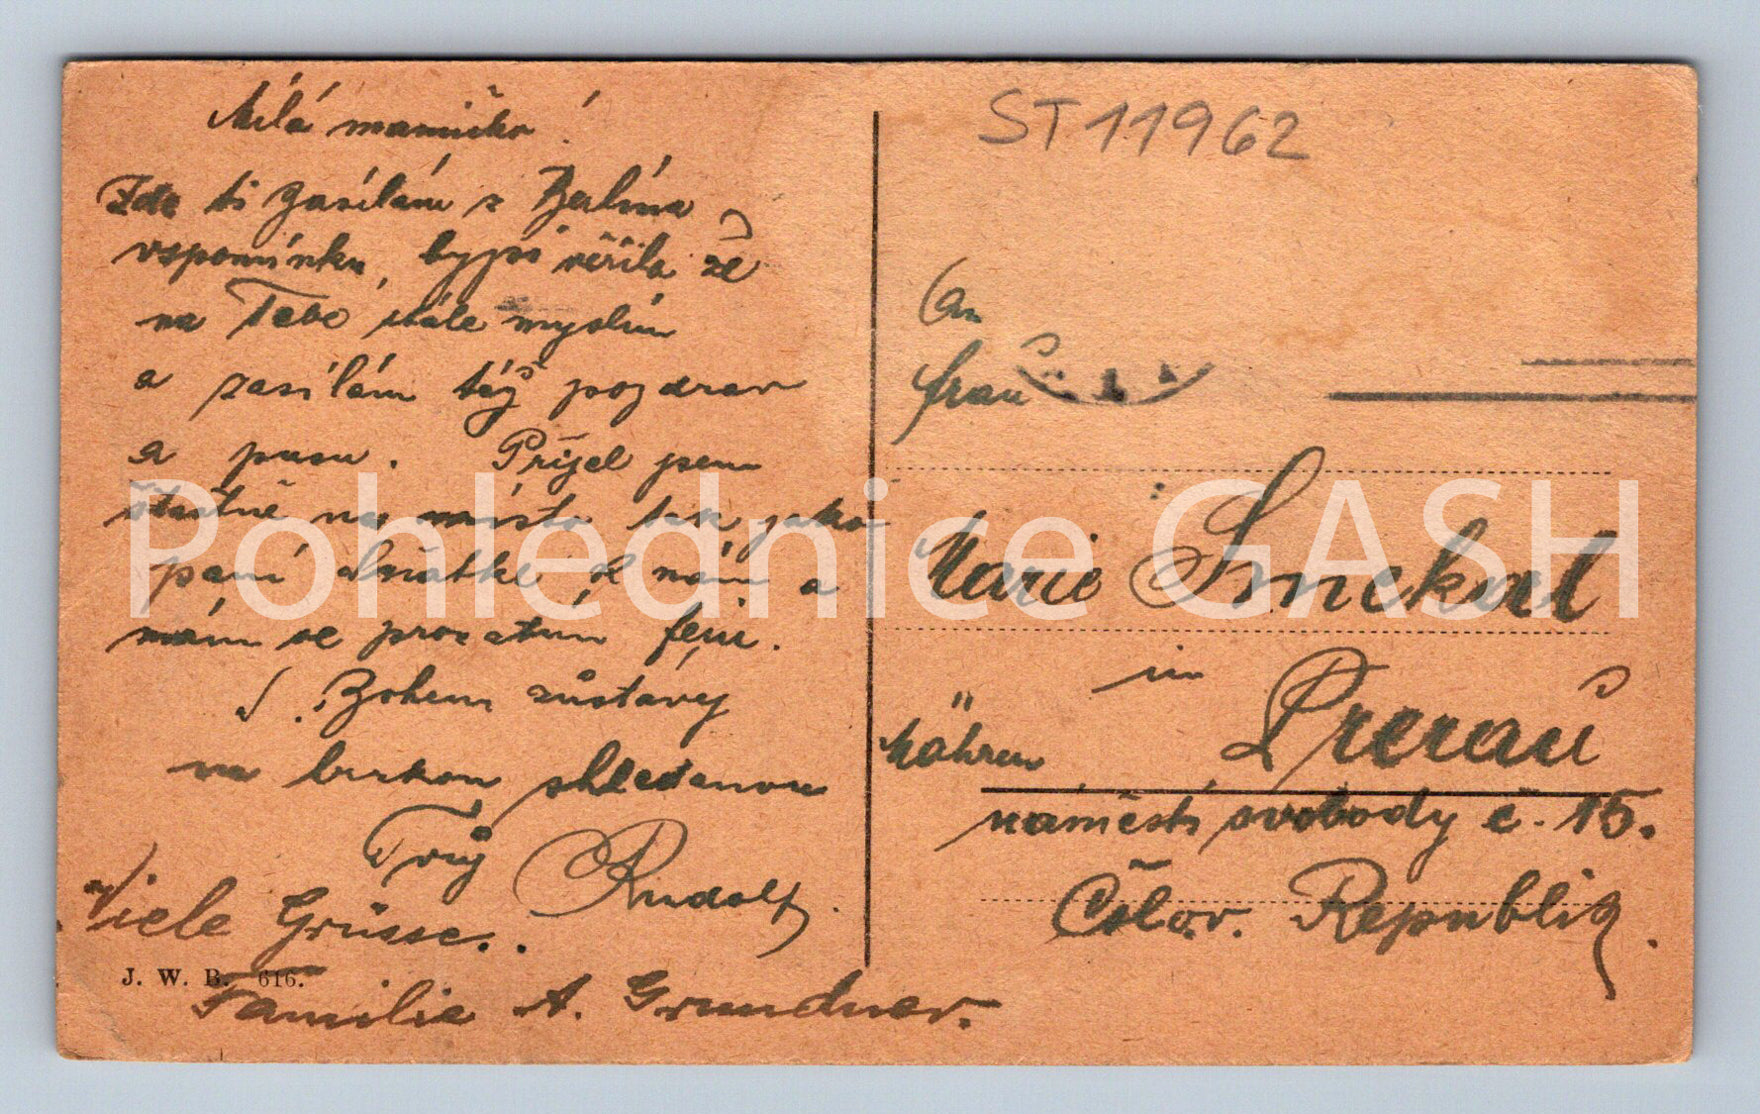 Milá maminko!
Zde ti zasílám z Berlína
vspomínku, bysi věřila že
na Tebe stále myslím
a zasílám též pozdrav
a pusu. Přijel jsem
štastně na místo tak jako
paní k nám a
mám se prozatím fein.
S. Bohem zůstávej
na brzkou shledanou
Tvůj Rudolf.
Viele Grüsse..
J. W. B. 616.
Familie A. Grundner.
ST11962
An
Frau
Marie Smekal
in
Mähren Prerau
náměstí svobody č. 15.
Čslov. Republik.
Pohlednice GASH